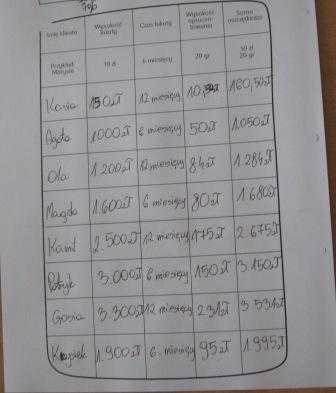 7%
Imię klienta Wysokość lokaty Czas lokaty Wysokość oprocentowania Suma oszczędności
Przykład: Matylda 10 zł 6 miesięcy 20 gr 10 zł 20 gr
Kasia 150zł 12 miesięcy 10,50zł 160,50zł
Agata 1000zł 6 miesięcy 50zł 1.050zł
Ola 1.200zł 12 miesięcy 84zł 1.284zł
Magda 1.600zł 6 miesięcy 80zł 1.680zł
Kamil 2.500zł 12 miesięcy 175zł 2.675zł
Patryk 3.000zł 6 miesięcy 150zł 3.150zł
Gosia 3.300zł 12 miesięcy 231zł 3.531zł
Krzysiek 1.900zł 6. miesięcy 95zł 1.995zł